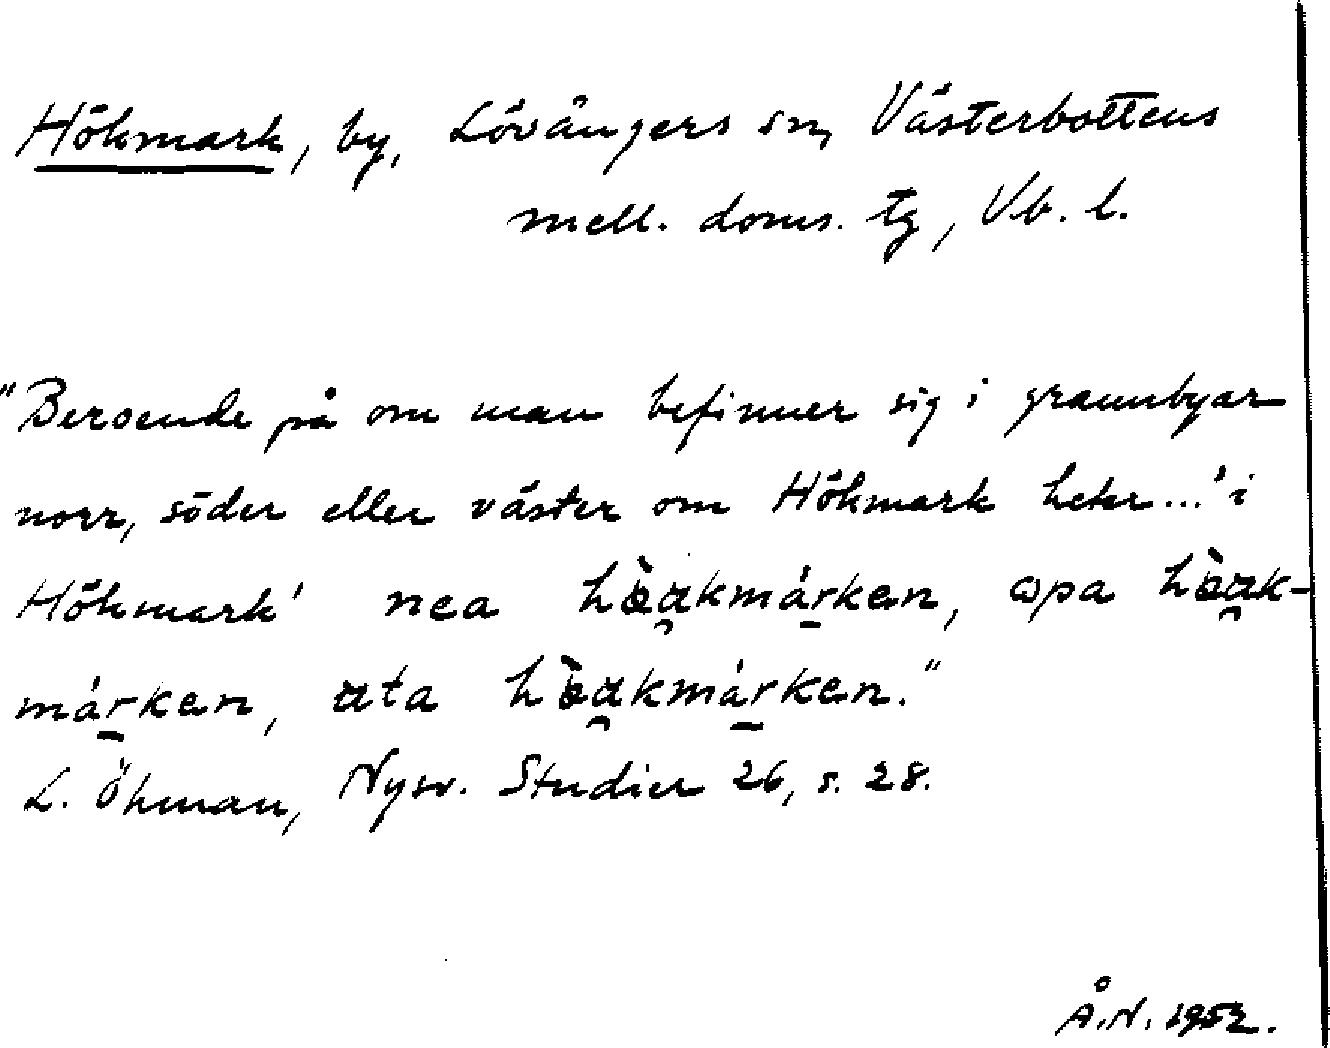 Hökmark, by, Lövångers sn, Västerbottens
mell. doms. tg, Vb. l.
"Beroende på om man befinner sig i grannbyar
norr, söder eller väster om Hökmark heter...'i
Hökmark' nea hɵ̀a̯kmár̠ken, ɷpa hɵ̀a̯k-
már̠ken, ata hɵ̀a̯kmár̠ken."
L. Öhman, Nysv. Studier 26, s. 28.
Å.N. 1952.